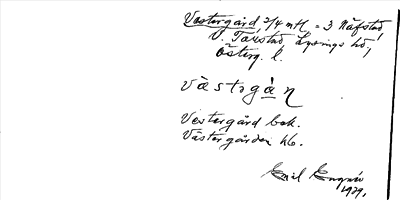 Västergård 3/4 mtl = 3 Näfstad
V. Tolstad, Lysings hd,
Österg. l.
västəgàɳ
Västergård bok.
Västergården hb.
Emil
1929.